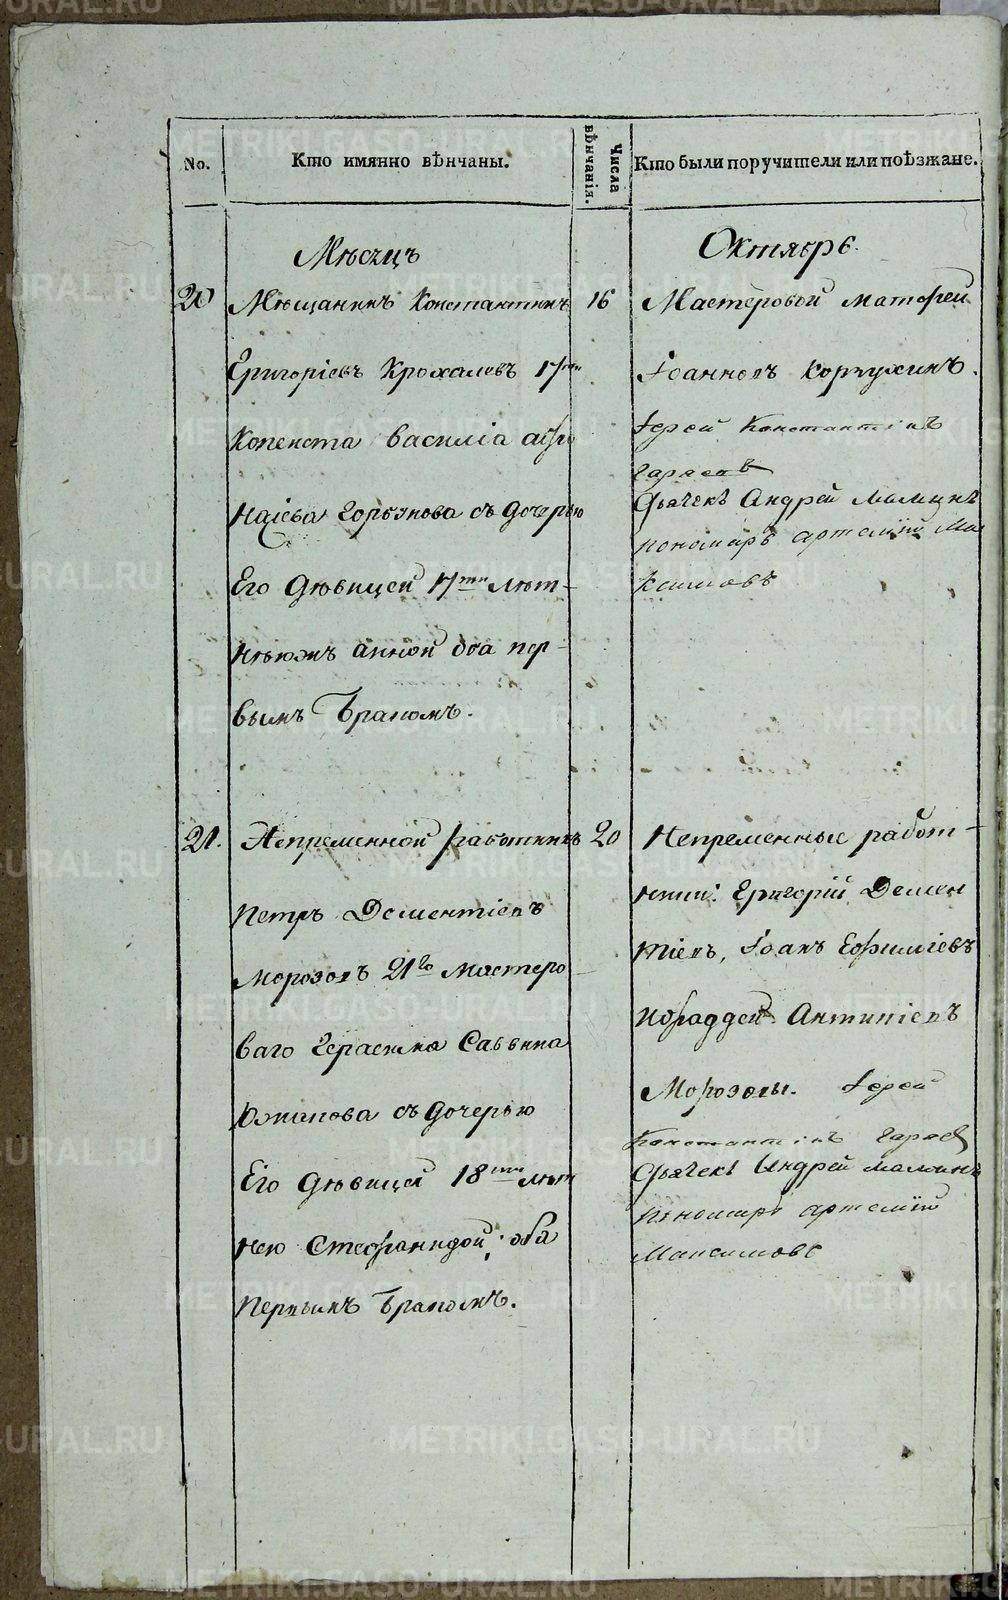 No.
Кто имянно вѣнчаны.
Числа вѣнчанія.
Кто были поручители или поѣзжане.
Мѣсяцъ
Октябрь.
20
Мѣщанинъ Константинъ
Григоріевъ Крохалевъ 17ти
Копеиста Василіа Афо
насіева Горбунова съ дочерью
Его дѣвицей 17ти лѣт-
нѣюжъ Анной оба пер-
вымъ Бракомъ.
16
Мастеровой Матфей
Іоанновъ Корчухинъ.
Іерей Константінъ
Гаряевъ
Дьячекъ Андрей Маминъ
пономарь Артемій Ма
ксимовъ
21.
Непременной работникъ
Петръ Дементіевъ
Морозовъ 21го Мастеро-
ваго Герасима Саввина
Южакова съ дочерью
Его дѣвицей 18ти лѣт
нею Стефанидой, оба
Первымъ Бракомъ.
20
Непременные работ-
ники: Григорій Демен
тіевъ, Іоанъ Ефиміевъ
Ифаддей Антипіевъ
Морозовы. Іерей
Константінъ Гаряев
Дьячекъ Андрей Маминъ
пономарь Артемій
Максимовъ
METRIKI.GASO-URAL.RU